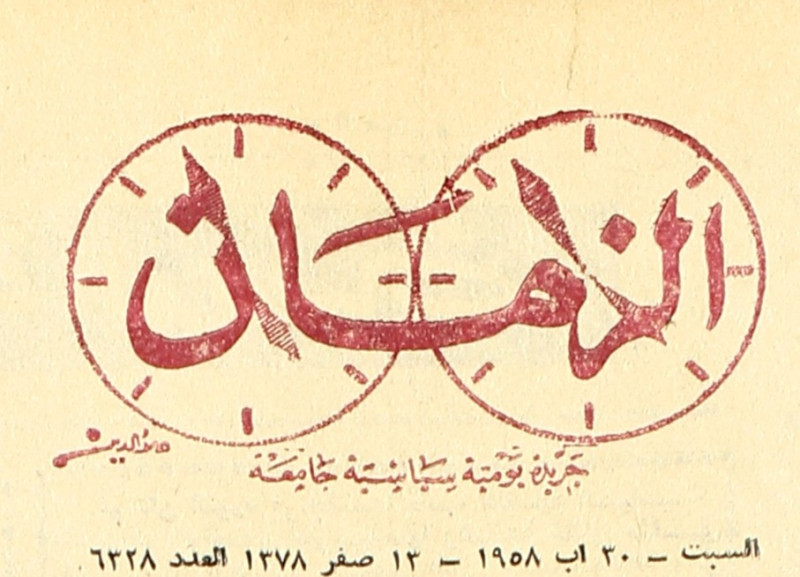 الزمان
جريدة يومية سياسية جامعة
السبت – ٣٠ اب ١٩٥٨ – ١٣ صفر ١٣٧٨ العدد ٦٣٢٨